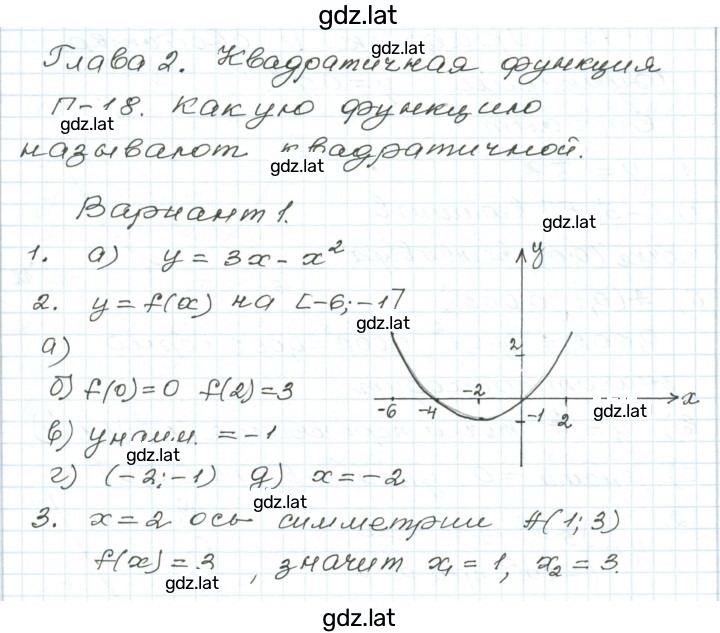 gdz.lat
Глава 2. Квадратичная функция
gdz.lat
П-18. Какую функцию
gdz.lat
называют квадратичной.
gdz.lat
Вариант 1.
gdz.lat
1. а) y = 3x - x²
y
2. y = f(x) на [-6; -1]
gdz.lat
а)
2
б) f(0) = 0 f(2) = 3
-6 -4 -2 -1 2 x
gdz.lat
в) y наим. = -1
gdz.lat
г) (-2; -1) д) x = -2
gdz.lat
3. x = 2 ось симметрии A(1; 3)
f(x) = 3, значит x₁ = 1, x₂ = 3.
gdz.lat
gdz.lat